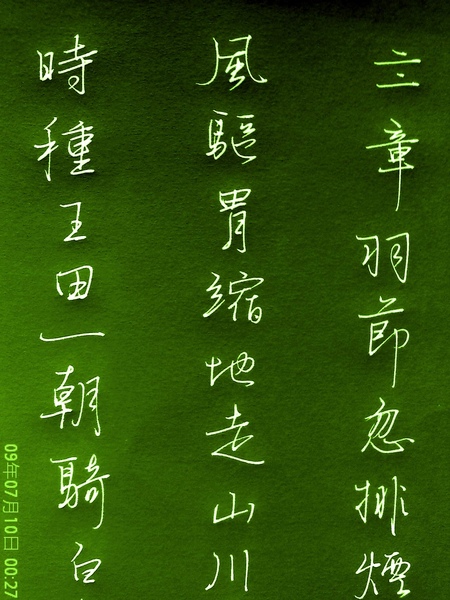 章羽節忽排煙
風驅日月縮地走山川
時種王田一朝騎白
09年07月10日 00:27